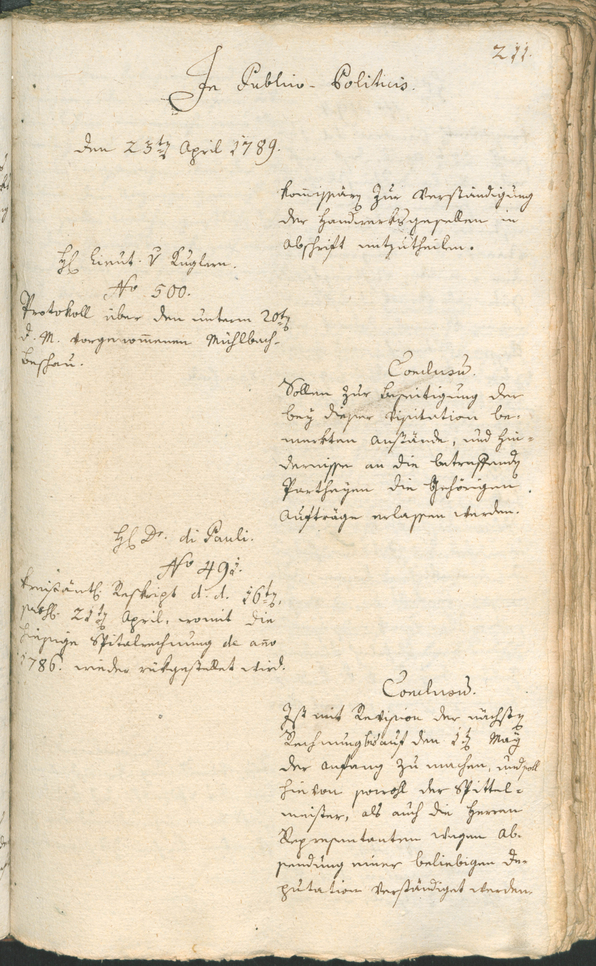 211.
In Publico-Politicis.
den 23ten April 1789.
kommissärs zur Verständigung
der Handwerksgesellen in
Abschrift mitzutheilen.
H. Lieut. v Kuglern.
No 500.
Protokoll über den unterm 20ten
d. M. vorgenommenen Mühlbach-
beschau.
Conclusū.
Sollen zur Beseitigung der
bey dieser Visitation be-
merkten Anstände, und Hin-
dernisse an die betreffende
Partheyen die gehörigen
Aufträge erlassen werden.
H. Dr. di Pauli.
No 491.
Kreisämtl. Reskript d. d. 16ten,
21ten April, womit die
hiesige Spitalrechnung de año
1786. wieder rükgestellet wird.
Conclusū.
Ist mit Revision der nächsten
Rechnung auf den 1ten May
der Anfang zu machen, und soll
hievon sowohl der Spittel-
meister, als auch die Herren
Repræsentanten wegen Ab-
sendung einer beliebigen De-
putation verständiget werden.